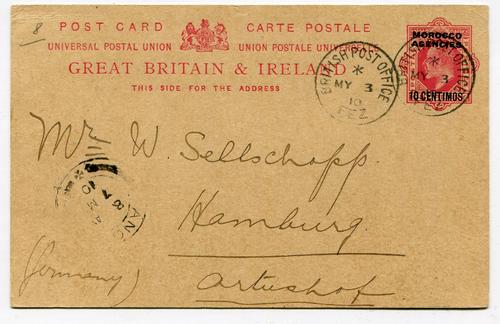 8
POST CARD CARTE POSTALE
UNIVERSAL POSTAL UNION UNION POSTALE UNIVERSELLE
GREAT BRITAIN & IRELAND
THIS SIDE FOR THE ADDRESS
MOROCCO
AGENCIES
10 CENTIMOS
BRITISH POST OFFICE
MY 3
10
FEZ
BRITISH POST OFFICE
MY 3
Mr W. Sellschopp
Hamburg
(Germany)
Artushof